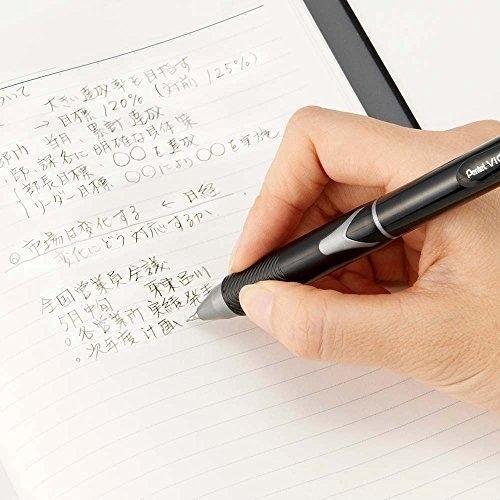 ついて
大きい達成率を目指す
→目標120%(対前125%)
当月、累計達成
部、課名に明確な具体策
部長目標、○○を達成
リーダー目標 ○○により○○を実施
◎市場は変化する ← 日経
変化にどう対応するか、
全国営業員会議
5月中旬 東京品川
○各営業所 実績発表
○次年度計画
Pentel VIC